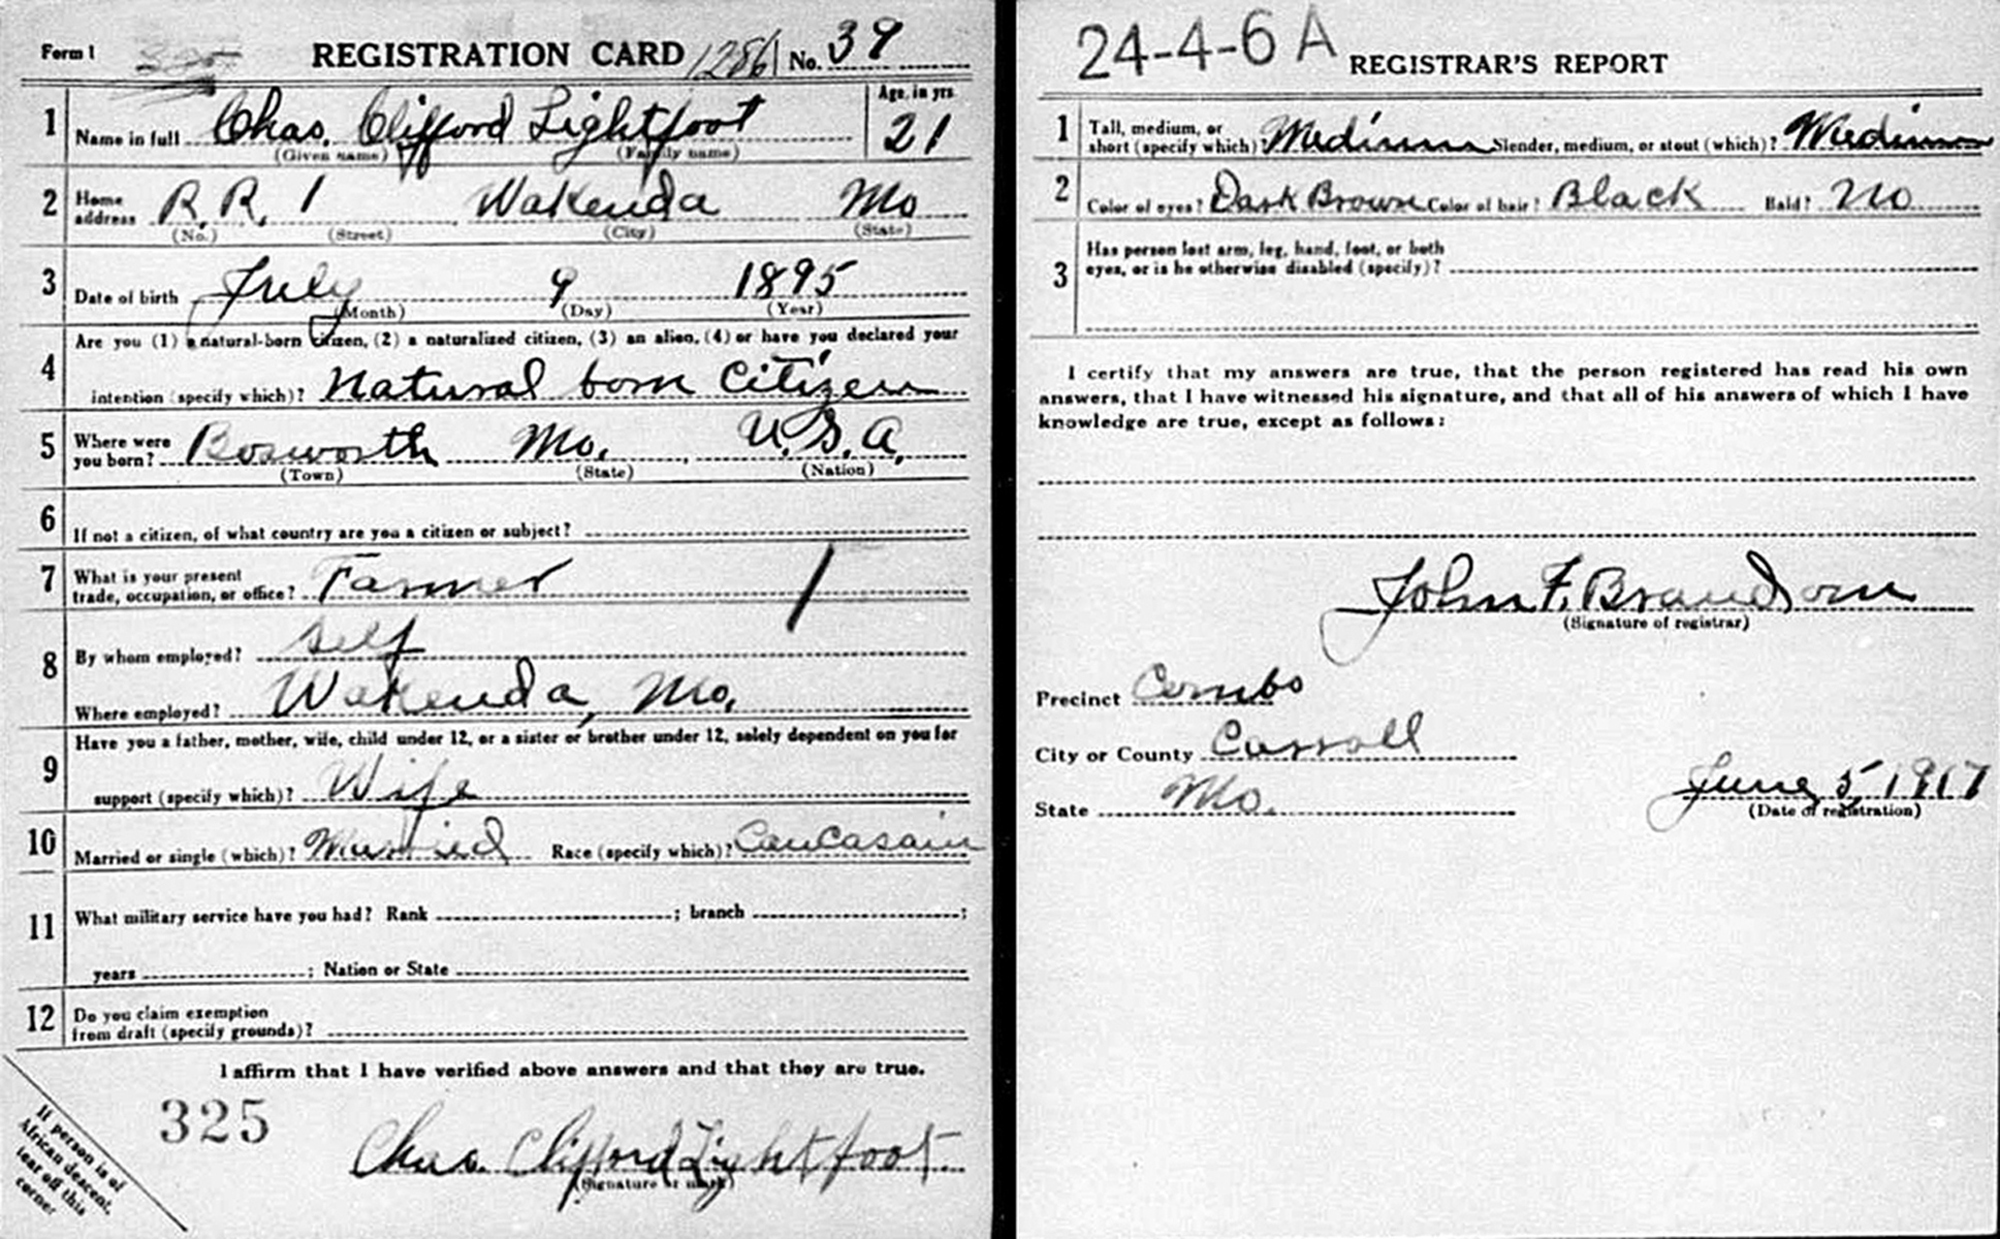 Form 1 REGISTRATION CARD 1286 No. 39
1 Name in full Chas. Clifford Lightfoot
(Given name) (Family name)
Age, in yrs.
21
2 Home address R. R. 1 Wakenda Mo
(No.) (Street) (City) (State)
3 Date of birth July 9 1895
(Month) (Day) (Year)
4 Are you (1) a natural-born citizen, (2) a naturalized citizen, (3) an alien, (4) or have you declared your
intention (specify which)? Natural born Citizen
5 Where were you born? Bosworth Mo. U.S.A.
(Town) (State) (Nation)
6 If not a citizen, of what country are you a citizen or subject?
7 What is your present
trade, occupation, or office? Farmer
8 By whom employed? self
Where employed? Wakenda, Mo.
9 Have you a father, mother, wife, child under 12, or a sister or brother under 12, solely dependent on you for
support (specify which)? Wife
10 Married or single (which)? Married Race (specify which)? Caucasain
11 What military service have you had? Rank ; branch ;
years ; Nation or State
12 Do you claim exemption
from draft (specify grounds)?
I affirm that I have verified above answers and that they are true.
325
Chas. Clifford Lightfoot
(Signature or mark)
If person is of
African descent,
tear off this
corner
24-4-6 A REGISTRAR'S REPORT
1 Tall, medium, or
short (specify which)? Medium Slender, medium, or stout (which)? Medium
2 Color of eyes? Dark Brown Color of hair? Black Bald? No
3 Has person lost arm, leg, hand, foot, or both
eyes, or is he otherwise disabled (specify)?
I certify that my answers are true, that the person registered has read his own
answers, that I have witnessed his signature, and that all of his answers of which I have
knowledge are true, except as follows:
John F. Brandom
(Signature of registrar)
Precinct Combs
City or County Carroll
State Mo.
June 5, 1917
(Date of registration)